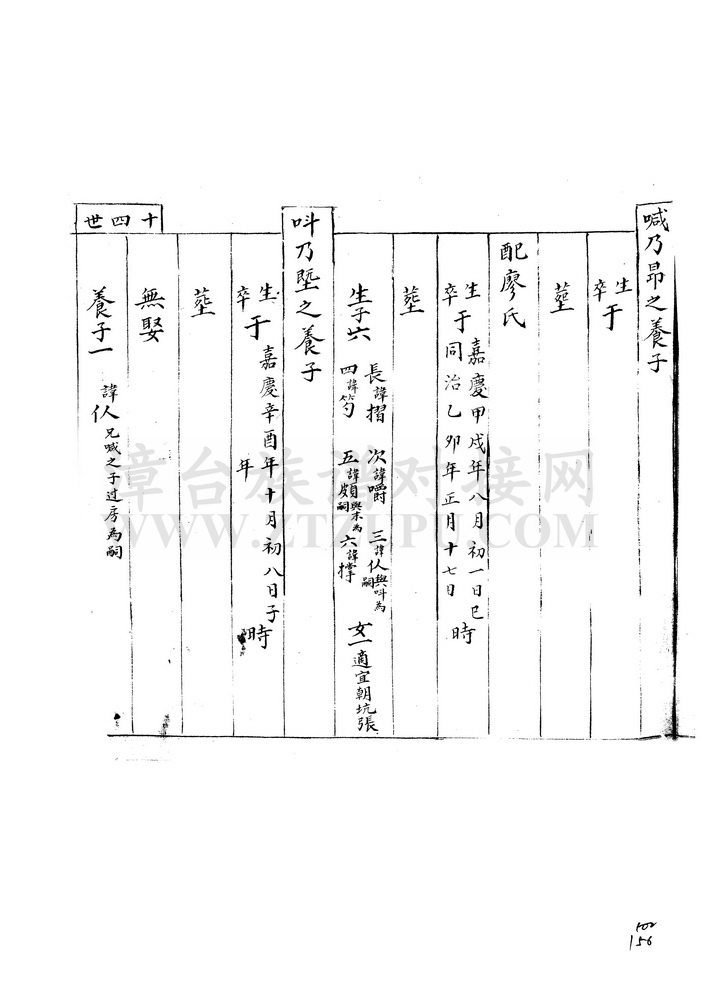 喊乃昂之養子
生
卒
于
塟
配廖氏
生 嘉慶甲戌年八月初一日巳
卒 同治乙卯年正月十七日
于 時
塟
生子六 長諱摺 次諱嚼 三諱仈與呌為嗣
四諱笉 五諱頗與末為嗣 六諱撐 女一適宜朝坑張
呌乃塈之養子
生 嘉慶辛酉年十月初八日子
卒 年
于 時
塟
無娶
養子一 諱仈兄喊之子过房為嗣
十四世
章台族谱对接网
WWW.ZTZUPU.COM
156